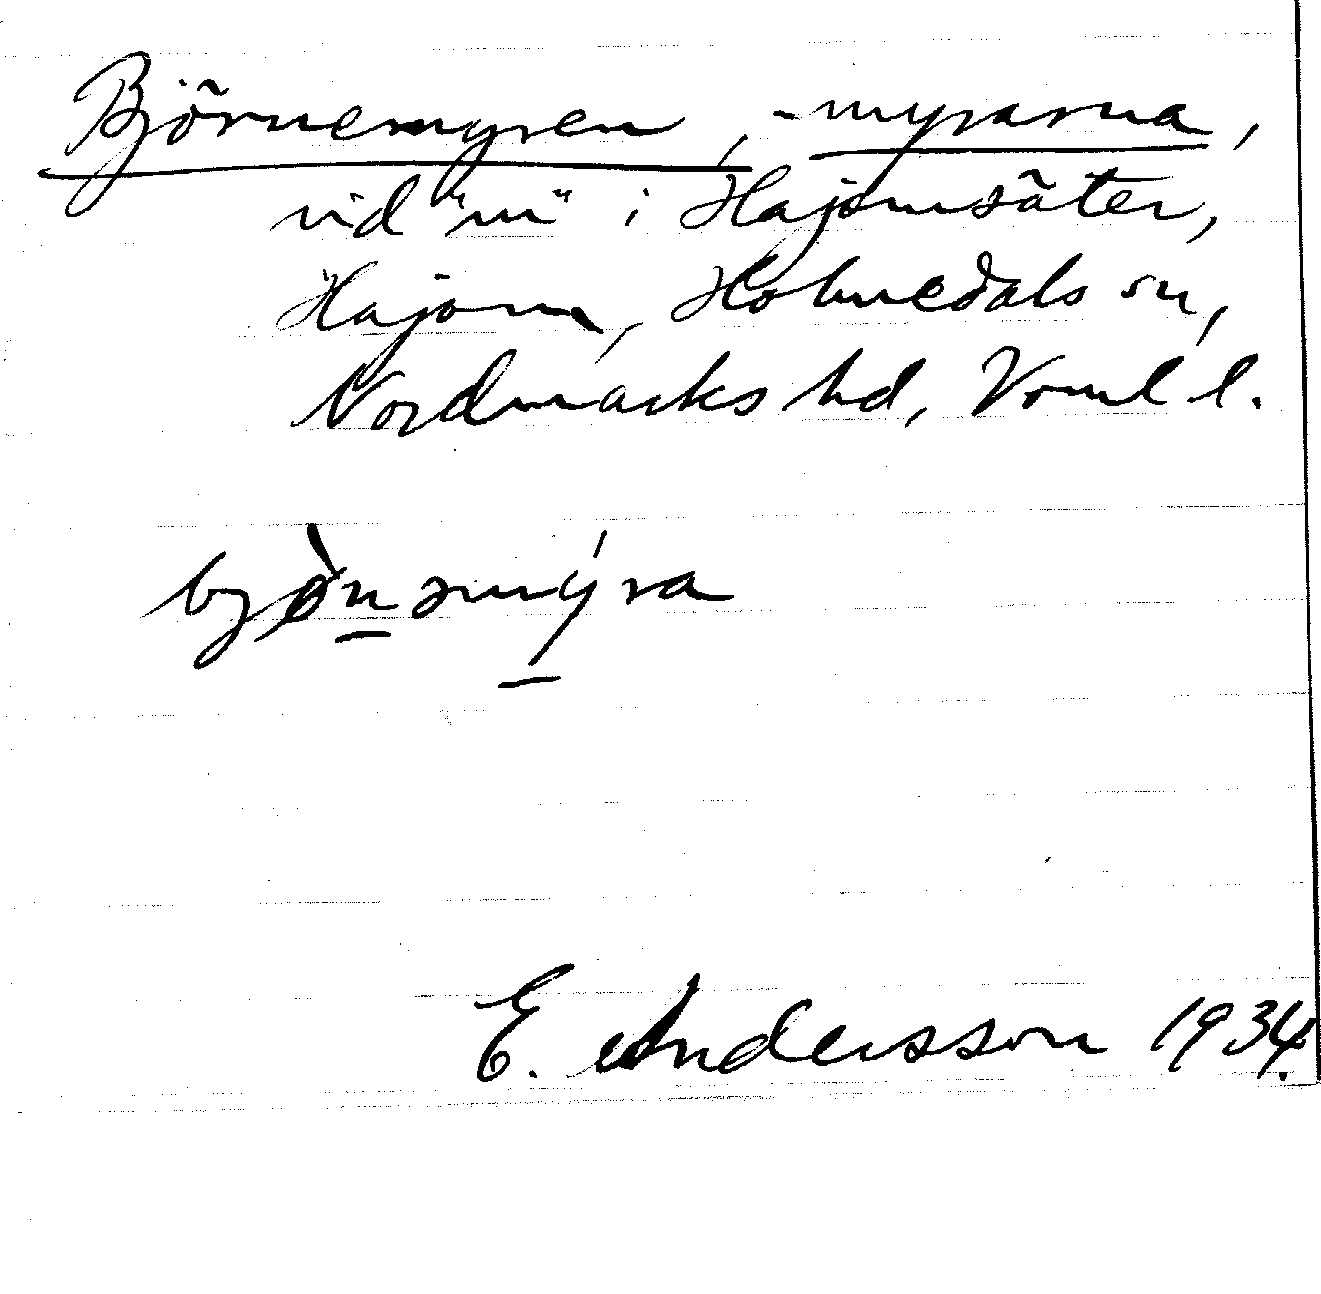 Björnemyren, -myrarna,
vid "m" i Hajomsäter,
Hajom, Holmedals sn,
Nordmarks hd, Vrml l.
bjònsmýra
E. Andersson 1934.